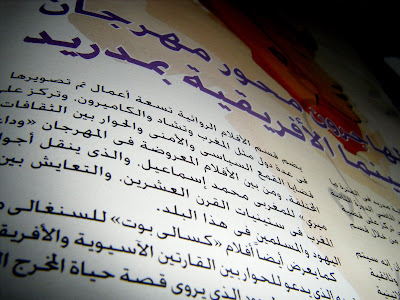 المهاجرون محور مهرجان
السينما الأفريقية بمدريد
يضم قسم الأفلام الروائية تسعة أعمال تم تصويرها
عدة دول مثل المغرب وتشاد والكاميرون. وتركز على
القمع السياسى والأمنى والحوار بين الثقافات
المختلفة. ومن بين الأفلام المعروضة فى المهرجان «وداعا
ميرى» للمغربى محمد إسماعيل. والذى ينقل أجواء
المغرب فى ستينيات القرن العشرين. والتعايش بين
اليهود والمسلمين فى هذا البلد.
كما يعرض أيضاً أفلام «كسالى بوت» للسنغالى
والذى يدعو للحوار بين القارتين الآسيوية والأفريقية
الذى يروى قصة حياة المخرج